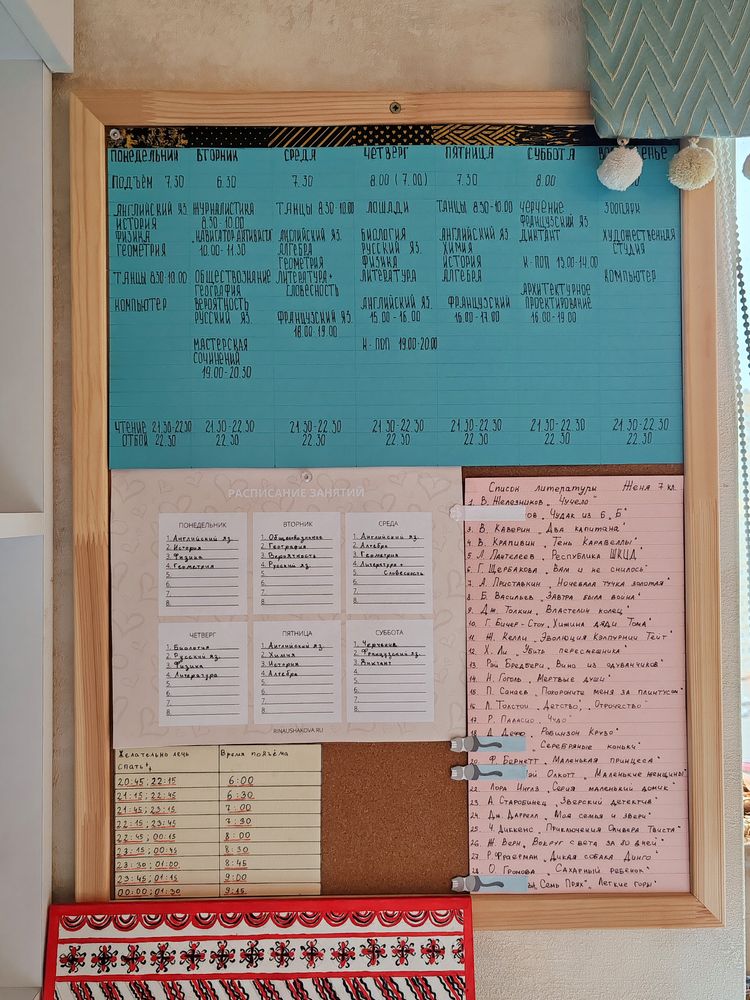 ПОНЕДЕЛЬНИК ВТОРНИК СРЕДА ЧЕТВЕРГ ПЯТНИЦА СУББОТА
ПОДЪЁМ 7.30 6.30 7.30 8.00 (7.00) 7.30 8.00
АНГЛИЙСКИЙ ЯЗ.
ИСТОРИЯ
ФИЗИКА
ГЕОМЕТРИЯ
ТАНЦЫ 8.30-10.00
КОМПЬЮТЕР
ЖУРНАЛИСТИКА
8.30-10.00
10.00-11.30
ОБЩЕСТВОЗНАНИЕ
ГЕОГРАФИЯ
ВЕРОЯТНОСТЬ
РУССКИЙ ЯЗ.
МАСТЕРСКАЯ
СОЧИНЕНИЙ
19.00-20.30
ТАНЦЫ 8.30-10.00
АНГЛИЙСКИЙ ЯЗ.
АЛГЕБРА
ГЕОМЕТРИЯ
ЛИТЕРАТУРА+
СЛОВЕСНОСТЬ
ФРАНЦУЗСКИЙ ЯЗ.
18.00-19.00
ЛОШАДИ
БИОЛОГИЯ
РУССКИЙ ЯЗ.
ФИЗИКА
ЛИТЕРАТУРА
АНГЛИЙСКИЙ ЯЗ.
15.00-16.00
К-ПОП 19.00-20.00
ТАНЦЫ 8.30-10.00
АНГЛИЙСКИЙ ЯЗ.
ХИМИЯ
ИСТОРИЯ
АЛГЕБРА
ФРАНЦУЗСКИЙ
16.00-17.00
ЧЕРЧЕНИЕ
ФРАНЦУЗСКИЙ ЯЗ.
ДИКТАНТ
К-ПОП 13.00-14.00
АРХИТЕКТУРНОЕ
ПРОЕКТИРОВАНИЕ
16.00-19.00
ЗООПАРК
ХУДОЖЕСТВЕННАЯ
СТУДИЯ
КОМПЬЮТЕР
ЧТЕНИЕ 21.30-22.30 21.30-22.30 21.30-22.30 21.30-22.30 21.30-22.30 21.30-22.30 21.30-22.30
ОТБОЙ 22.30 22.30 22.30 22.30 22.30 22.30 22.30
РАСПИСАНИЕ ЗАНЯТИЙ
ПОНЕДЕЛЬНИК
1. Английский яз.
2. История
3. Физика
4. Геометрия
5.
6.
7.
8.
ВТОРНИК
1. Обществознание
2. География
3. Вероятность
4. Русский яз.
5.
6.
7.
8.
СРЕДА
1. Английский яз.
2. Алгебра
3. Геометрия
4. Литература +
5. Словесность
6.
7.
8.
ЧЕТВЕРГ
1. Биология
2. Русский яз.
3. Физика
4. Литература
5.
6.
7.
8.
ПЯТНИЦА
1. Английский яз.
2. Химия
3. История
4. Алгебра
5.
6.
7.
8.
СУББОТА
1. Черчение
2. Французский яз.
3. Диктант
4.
5.
6.
7.
8.
RINAUSHAKOVA.RU
Список литературы Женя 7 кл.
1. В. Железников „Чучело"
„Чудак из 6 „Б"
3. В. Каверин „Два капитана"
4. В. Крапивин „Тень Каравеллы"
5. Л. Пантелеев „Республика ШКИД"
6. Г. Щербакова „Вам и не снилось"
7. А. Приставкин „Ночевала тучка золотая"
8. Б. Васильев „Завтра была война"
9. Дж. Толкин „Властелин колец"
10. Г. Бичер-Стоу „Хижина дяди Тома"
11. Ж. Келли „Эволюция Кэлпурнии Тейт"
12. Х. Ли „Убить пересмешника"
13. Рэй Бредбери „Вино из одуванчиков"
14. Н. Гоголь „Мертвые души"
15. П. Санаев „Похороните меня за плинтусом"
16. Л. Толстой „Детство", „Отрочество"
17. Р. Паласио „Чудо"
18. Д. Дефо „Робинзон Крузо"
„Серебряные коньки"
20. Ф. Бернетт „Маленькая принцесса"
Олкотт „Маленькие женщины"
22. Лора Инглз „Серия маленький домик"
23. А Старобинец „Зверский детектив"
24. Дж. Даррелл „Моя семья и звери"
25. Ч. Диккенс „Приключения Оливера Твиста"
26. Ж. Верн „Вокруг света за 80 дней"
27. Р. Фраерман „Дикая собака Динго"
28. О. Громова „Сахарный ребенок"
„Семь Прях", „Легкие горы"
Желательно лечь Время подъёма
спать
20:45; 22:15 6:00
21:15; 22:45 6:30
21:45; 23:15 7:00
22:15; 23:45 7:30
22:45; 00:15 8:00
23:15; 00:45 8:30
23:30; 01:00 8:45
23:45; 01:15 9:00
00:00; 01:30 9:15